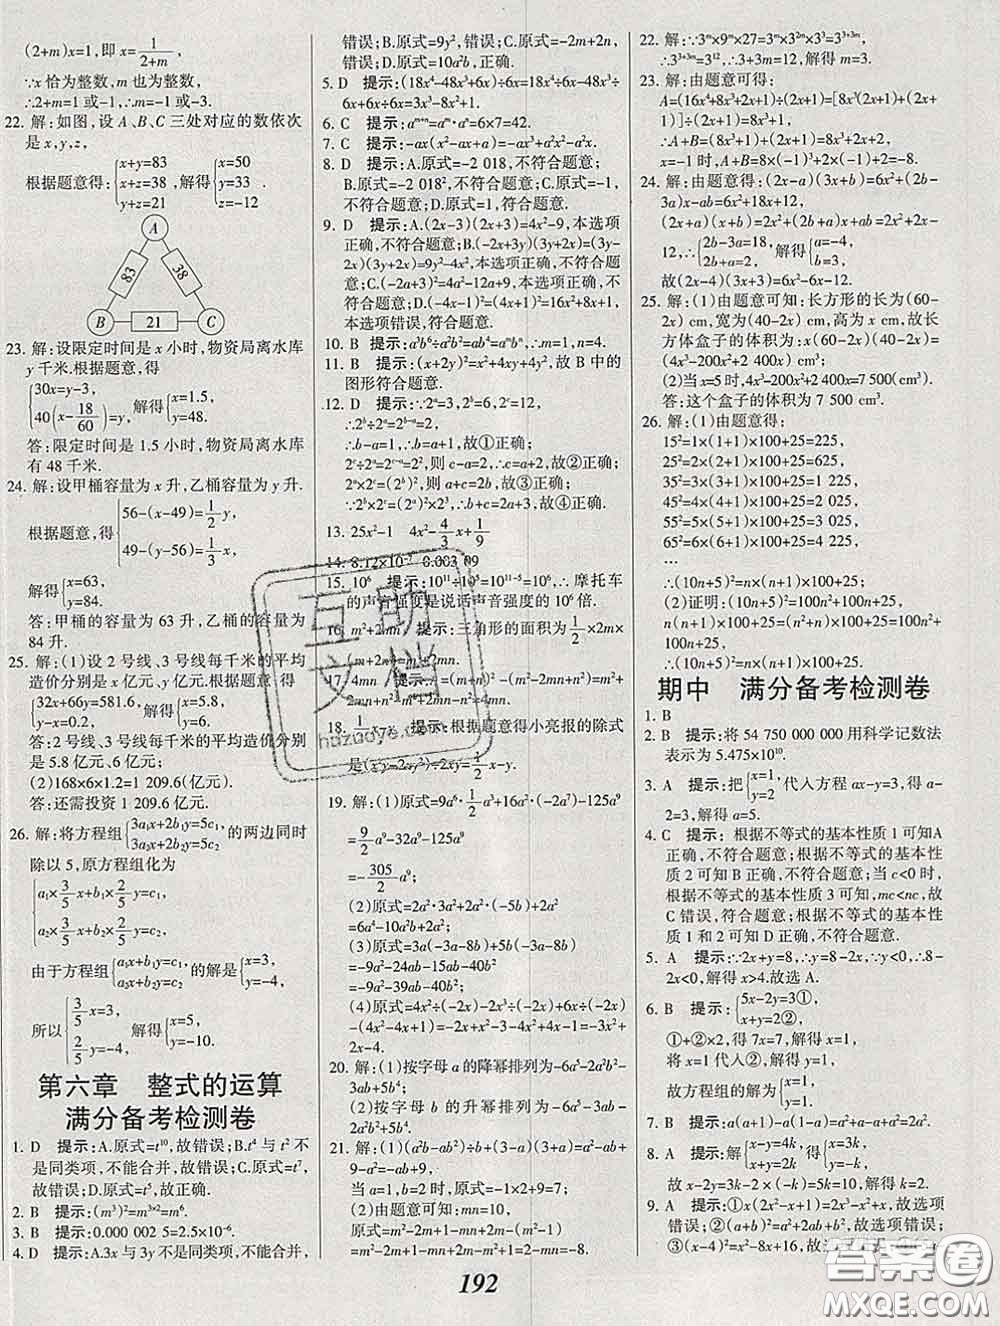 (2+m)x=1,即 x=1/(2+m),
∵x 恰为整数,m 也为整数,
∴2+m=1 或-1,∴m=-1 或-3.
22. 解:如图,设 A、B、C 三处对应的数依次
是 x,y,z,
根据题意得:{x+y=83 x+z=38 y+z=21,解得{x=50 y=33 z=-12.
A
83
38
B
21
C
23. 解:设限定时间是 x 小时,物资局离水库
y 千米.根据题意,得
{30x=y-3, 40(x-18/60)=y, 解得{x=1.5, y=48.
答:限定时间是 1.5 小时,物资局离水库
有 48 千米.
24. 解:设甲桶容量为 x 升,乙桶容量为 y 升.
根据题意,得{56-(x-49)=1/2y, 49-(y-56)=1/3x,
解得{x=63, y=84.
答:甲桶的容量为 63 升,乙桶的容量为
84 升.
25. 解:(1)设 2 号线、3 号线每千米的平均
造价分别是 x 亿元、y 亿元.根据题意 得
{32x+66y=581.6, y-x=0.2, 解得{x=5.8, y=6.
答:2 号线、3 号线每千米的平均造价分别
是 5.8 亿元、6 亿元;
(2)168×6×1.2=1 209.6(亿元).
答:还需投资 1 209.6 亿元.
26. 解:将方程组{3a₁x+2b₁y=5c₁, 3a₂x+2b₂y=5c₂的两边同时
除以 5,原方程组化为
{a₁×3/5x+b₁×2/5y=c₁, a₂×3/5x+b₂×2/5y=c₂,
由于方程组{a₁x+b₁y=c₁, a₂x+b₂y=c₂的解是{x=3, y=-4,
所以{3/5x=3, 2/5y=-4, 解得{x=5, y=-10.
第六章 整式的运算
满分备考检测卷
1. D 提示:A.原式=t¹⁰,故错误;B.t⁴ 与 t² 不
是同类项,不能合并,故错误;C.原式=t¹²,
故错误;D.原式=t⁵,故正确.
2. B 提示:(m³)²=m³ˣ²=m⁶.
3. B 提示:0.000 002 5=2.5×10⁻⁶.
4. D 提示:A.3x 与 3y 不是同类项,不能合并,
错误;B.原式=9y²,错误;C.原式=-2m+2n,
错误;D.原式=10a²b,正确.
5. D 提示:(18x⁴-48x³+6x)÷6x=18x⁴÷6x-48x³÷
6x+6x÷6x=3x³-8x²+1.
6. C 提示:aᵐ⁺ⁿ=aᵐ·aⁿ=6×7=42.
7. C 提示:-ax(x²-ax+a)=-ax³+a²x²-a²x.
8. D 提示:A.原式=-2 018,不符合题意;
B.原式=-2 018²,不符合题意;C.原式=-1,
不符合题意;D.原式=1,符合题意.
9. D 提示:A.(2x-3)(2x+3)=4x²-9,本选项
正确,不符合题意;B.(-2x+3y)(3y+2x)=(3y)²-
(2x)²=9y²-4x²,本选项正确,不符合题意;
C.(-2a+3)²=4a²-12a+9,本选项正确,不符
合题意;D.(-4x-1)²=(4x+1)²=16x²+8x+1,
本选项错误,符合题意.
10. B 提示:a³b⁶÷a²b²=ab⁴=aᵐbⁿ,∴m=1,n=4.
11. B 提示:(x+2y)²=x²+4xy+4y²,故 B 中的
图形符合题意.
12. D 提示:∵2ᵃ=3,2ᵇ=6,2ᶜ=12,
∴2ᵇ÷2ᵃ=2ᵇ⁻ᵃ=2,
∴b-a=1,∴b=a+1,故①正确;
2ᶜ÷2ᵃ=2ᶜ⁻ᵃ=2²,则 c-a=2,故②正确;
2ᵃ×2ᶜ=(2ᵇ)²,则 a+c=2b,故③正确;
2ᵇ×2ᶜ=(2ᵃ)²×2³,∴b+c=2a+3,故④正确.
13. 25x²-1 4x²-4/3x+1/9
14. 8.12×10⁻⁷ 0.003 09
15. 10⁶ 提示:10¹¹÷10⁵=10¹¹⁻⁵=10⁶,∴摩托车
的声音强度是说话声音强度的 10⁶ 倍.
16. m²+2mn 提示:三角形的面积为1/2×2m×
(m+2n)=m²+2mn.
17. 4mn
18. 1/2x-y 提示:根据题意得小亮报的除式
是(x²y-2xy²)÷2xy=1/2x-y.
19. 解:(1)原式=9a⁶·1/2a³+16a²·(-2a⁷)-125a⁹
=9/2a⁹-32a⁹-125a⁹
=-305/2a⁹;
(2)原式=2a²·3a²+2a²·(-5b)+2a²
=6a⁴-10a²b+2a²;
(3)原式=3a(-3a-8b)+5b(-3a-8b)
=-9a²-24ab-15ab-40b²
=-9a²-39ab-40b²;
(4)原式=4x²÷(-2x)-2x³÷(-2x)+6x÷(-2x)
-(4x²-4x+1)=-2x+x²-3-4x²+4x-1=-3x²+2x-4.
20. 解:(1)按字母 a 的降幂排列为-6a⁵-2a²b³-
3ab²+5b⁴;
(2)按字母 b 的升幂排列为-6a⁵-3ab²-
2a²b³+5b⁴.
21. 解:(1)(a²b-ab²)÷b+(3-a)(3+a)=a²-ab+
9-a²=-ab+9;
当 a=1,b=2 时,原式=-1×2+9=7;
(2)由题意可知:mn=10,
原式=m²-2m+1-mn+2m-n²+n²
=m²-2m+1-mn+2m-m²=-mn+1=-9.
22. 解:∵3ᵐ×9ᵐ×27=3ᵐ×3²ᵐ×3³=3³⁺³ᵐ,
∴3³⁺³ᵐ=3¹²,∴3+3m=12,解得 m=3.
23. 解:由题意可得:
A=(16x⁴+8x³+2x+1)÷(2x+1)=[8x³(2x+1)+(2x+
1)]÷(2x+1)=8x³+1,
∴A+B=(8x³+1)+(2x+1)=8x³+2x+2,
x=-1 时,A+B=8×(-1)³+2×(-1)+2=-8.
24. 解:由题意得:(2x-a)(3x+b)=6x²+(2b-
3a)x-ab=6x²+18x+12,
(2x+a)(x+b)=2x²+(2b+a)x+ab=2x²+2x-
12,∴{2b-3a=18, 2b+a=2, 解得{a=-4, b=3,
故(2x-4)(3x+3)=6x²-6x-12.
25. 解:(1)由题意可知:长方形的长为(60-
2x) cm,宽为(40-2x) cm,高为 x cm,故长
方体盒子的体积为:x(60-2x)(40-2x)=
(4x³-200x²+2 400x) cm³;
(2)当 x=5 时,4x³-200x²+2 400x=7 500(cm³).
答:这个盒子的体积为 7 500 cm³.
26. 解:(1)由题意得:
15²=1×(1+1)×100+25=225,
25²=2×(2+1)×100+25=625,
35²=3×(3+1)×100+25=1 225,
45²=4×(4+1)×100+25=2 025,
55²=5×(5+1)×100+25=3 025,
65²=6×(6+1)×100+25=4 225,
…
∴(10n+5)²=n×(n+1)×100+25;
(2)证明:(10n+5)²=100n²+100n+25,
n(n+1)×100+25=100n²+100n+25,
∴(10n+5)²=n×(n+1)×100+25.
期中 满分备考检测卷
1. B
2. B 提示:将 54 750 000 000 用科学记数法
表示为 5.475×10¹⁰.
3. A 提示:把{x=1, y=2代入方程 ax-y=3,得 a-
2=3,解得 a=5.
4. C 提示:根据不等式的基本性质 1 可知A
正确,不符合题意;根据不等式的基本性
质 2 可知 B 正确,不符合题意;当 c<0 时,
根据不等式的基本性质 3 可知,mc<nc,故
C 错误,符合题意;根据不等式的基本性
质 1 和 2 可知 D 正确,不符合题意.
5. A 提示:∵2x+y=8,∴y=8-2x,∵y<0,∴8-
2x<0,解得 x>4.故选 A.
6. B 提示:{5x-2y=3①, x+2y=3②,
①+②×2得:7x=7,解得 x=1,
将 x=1 代入②得:y=1,
故方程组的解为{x=1, y=1.
7. B 提示:a(a+1)-a(1-a)=a²+a-a+a²=2a².
8. A 提示:解{x-y=4k, x+y=2k得{x=3k, y=-k,
故 x-2y=3k-2×(-k)=5k=10,解得 k=2.
9. A 提示:①x(2x²-x+1)=2x³-x²+x,故选项
错误;②(a+b)²=a²+2ab+b²,故选项错误;
③(x-4)²=x²-8x+16,故选项错误
192
互助
文档
huzuoye.com
答案圈
MXQE.COM